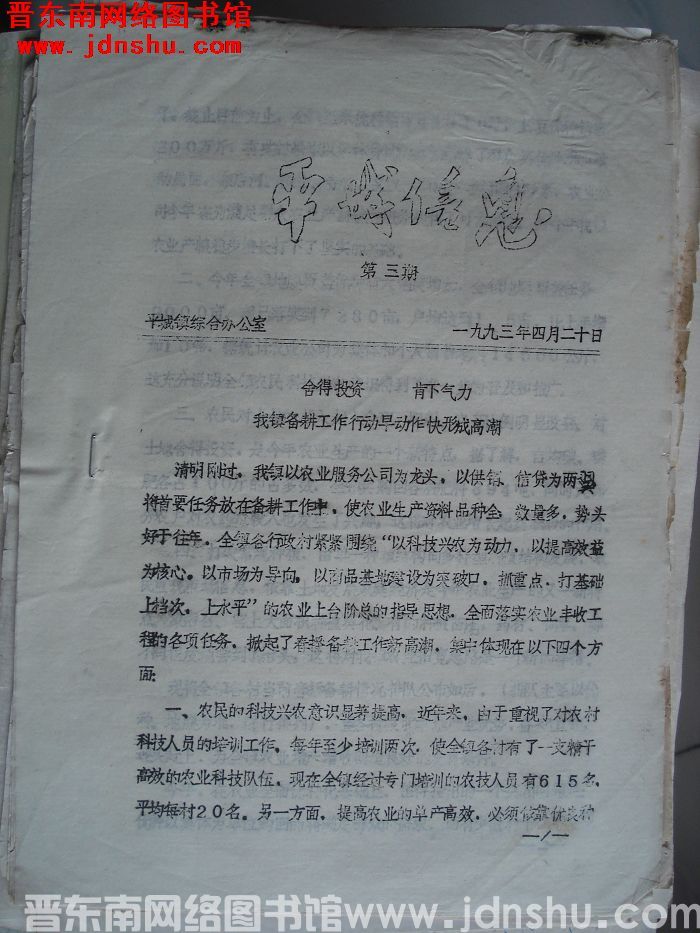 晋东南网络图书馆
www.jdnshu.com
平城信息
第三期
平城镇综合办公室 一九九三年四月二十日
舍得投资 肯下气力
我镇备耕工作行动早动作快形成高潮
清明刚过，我镇以农业服务公司为龙头，以供销、信贷为两翼
将首要任务放在备耕工作中，使农业生产资料品种全，数量多，势头
好于往年，全镇各行政村紧紧围绕“以科技兴农为动力，以提高效益
为核心，以市场为导向，以商品基地建设为突破口，抓重点，打基础
上档次，上水平”的农业上台阶总的指导思想，全面落实农业丰收工
程的各项任务，掀起了春播备耕工作新高潮，集中体现在以下四个方
面：
一、农民的科技兴农意识显著提高，近年来，由于重视了对农村
科技人员的培训工作，每年至少培训两次，使全镇各村有了一支精干
高效的农业科技队伍，现在全镇经过专门培训的农技人员有615名，
平均每村20名。另一方面，提高农业的单产高效，必须依靠优良种
—1—
晋东南网络图书馆 www.jdnshu.com